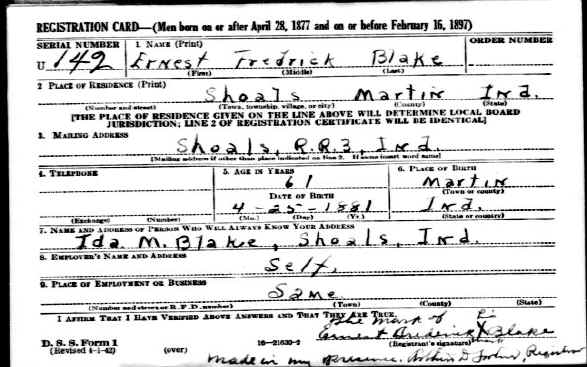 REGISTRATION CARD—(Men born on or after April 28, 1877 and on or before February 16, 1897)
SERIAL NUMBER 1. NAME (Print) ORDER NUMBER
U 142 Ernest Fredrick Blake
(First) (Middle) (Last)
2. PLACE OF RESIDENCE (Print)
Shoals Martin Ind.
(Number and street) (Town, township, village, or city) (County) (State)
[THE PLACE OF RESIDENCE GIVEN ON THE LINE ABOVE WILL DETERMINE LOCAL BOARD
JURISDICTION; LINE 2 OF REGISTRATION CERTIFICATE WILL BE IDENTICAL]
3. MAILING ADDRESS
Shoals, R.R.3, Ind.
[Mailing address if other than place indicated on line 2. If same insert word same]
4. TELEPHONE 5. AGE IN YEARS 6. PLACE OF BIRTH
61 Martin
DATE OF BIRTH (Town or county)
4-25-1881 Ind.
(Exchange) (Number) (Mo.) (Day) (Yr.) (State or country)
7. NAME AND ADDRESS OF PERSON WHO WILL ALWAYS KNOW YOUR ADDRESS
Ida M. Blake, Shoals, Ind.
8. EMPLOYER'S NAME AND ADDRESS
Self,
9. PLACE OF EMPLOYMENT OR BUSINESS
Same
(Number and street or R. F. D. number) (Town) (County) (State)
I AFFIRM THAT I HAVE VERIFIED ABOVE ANSWERS AND THAT THEY ARE TRUE.
The mark of
Ernest Frederick X Blake
D. S. S. Form 1 16—21630-2 (Registrant's signature)
(Revised 4-1-42) (over)
made in my presence. Registrar